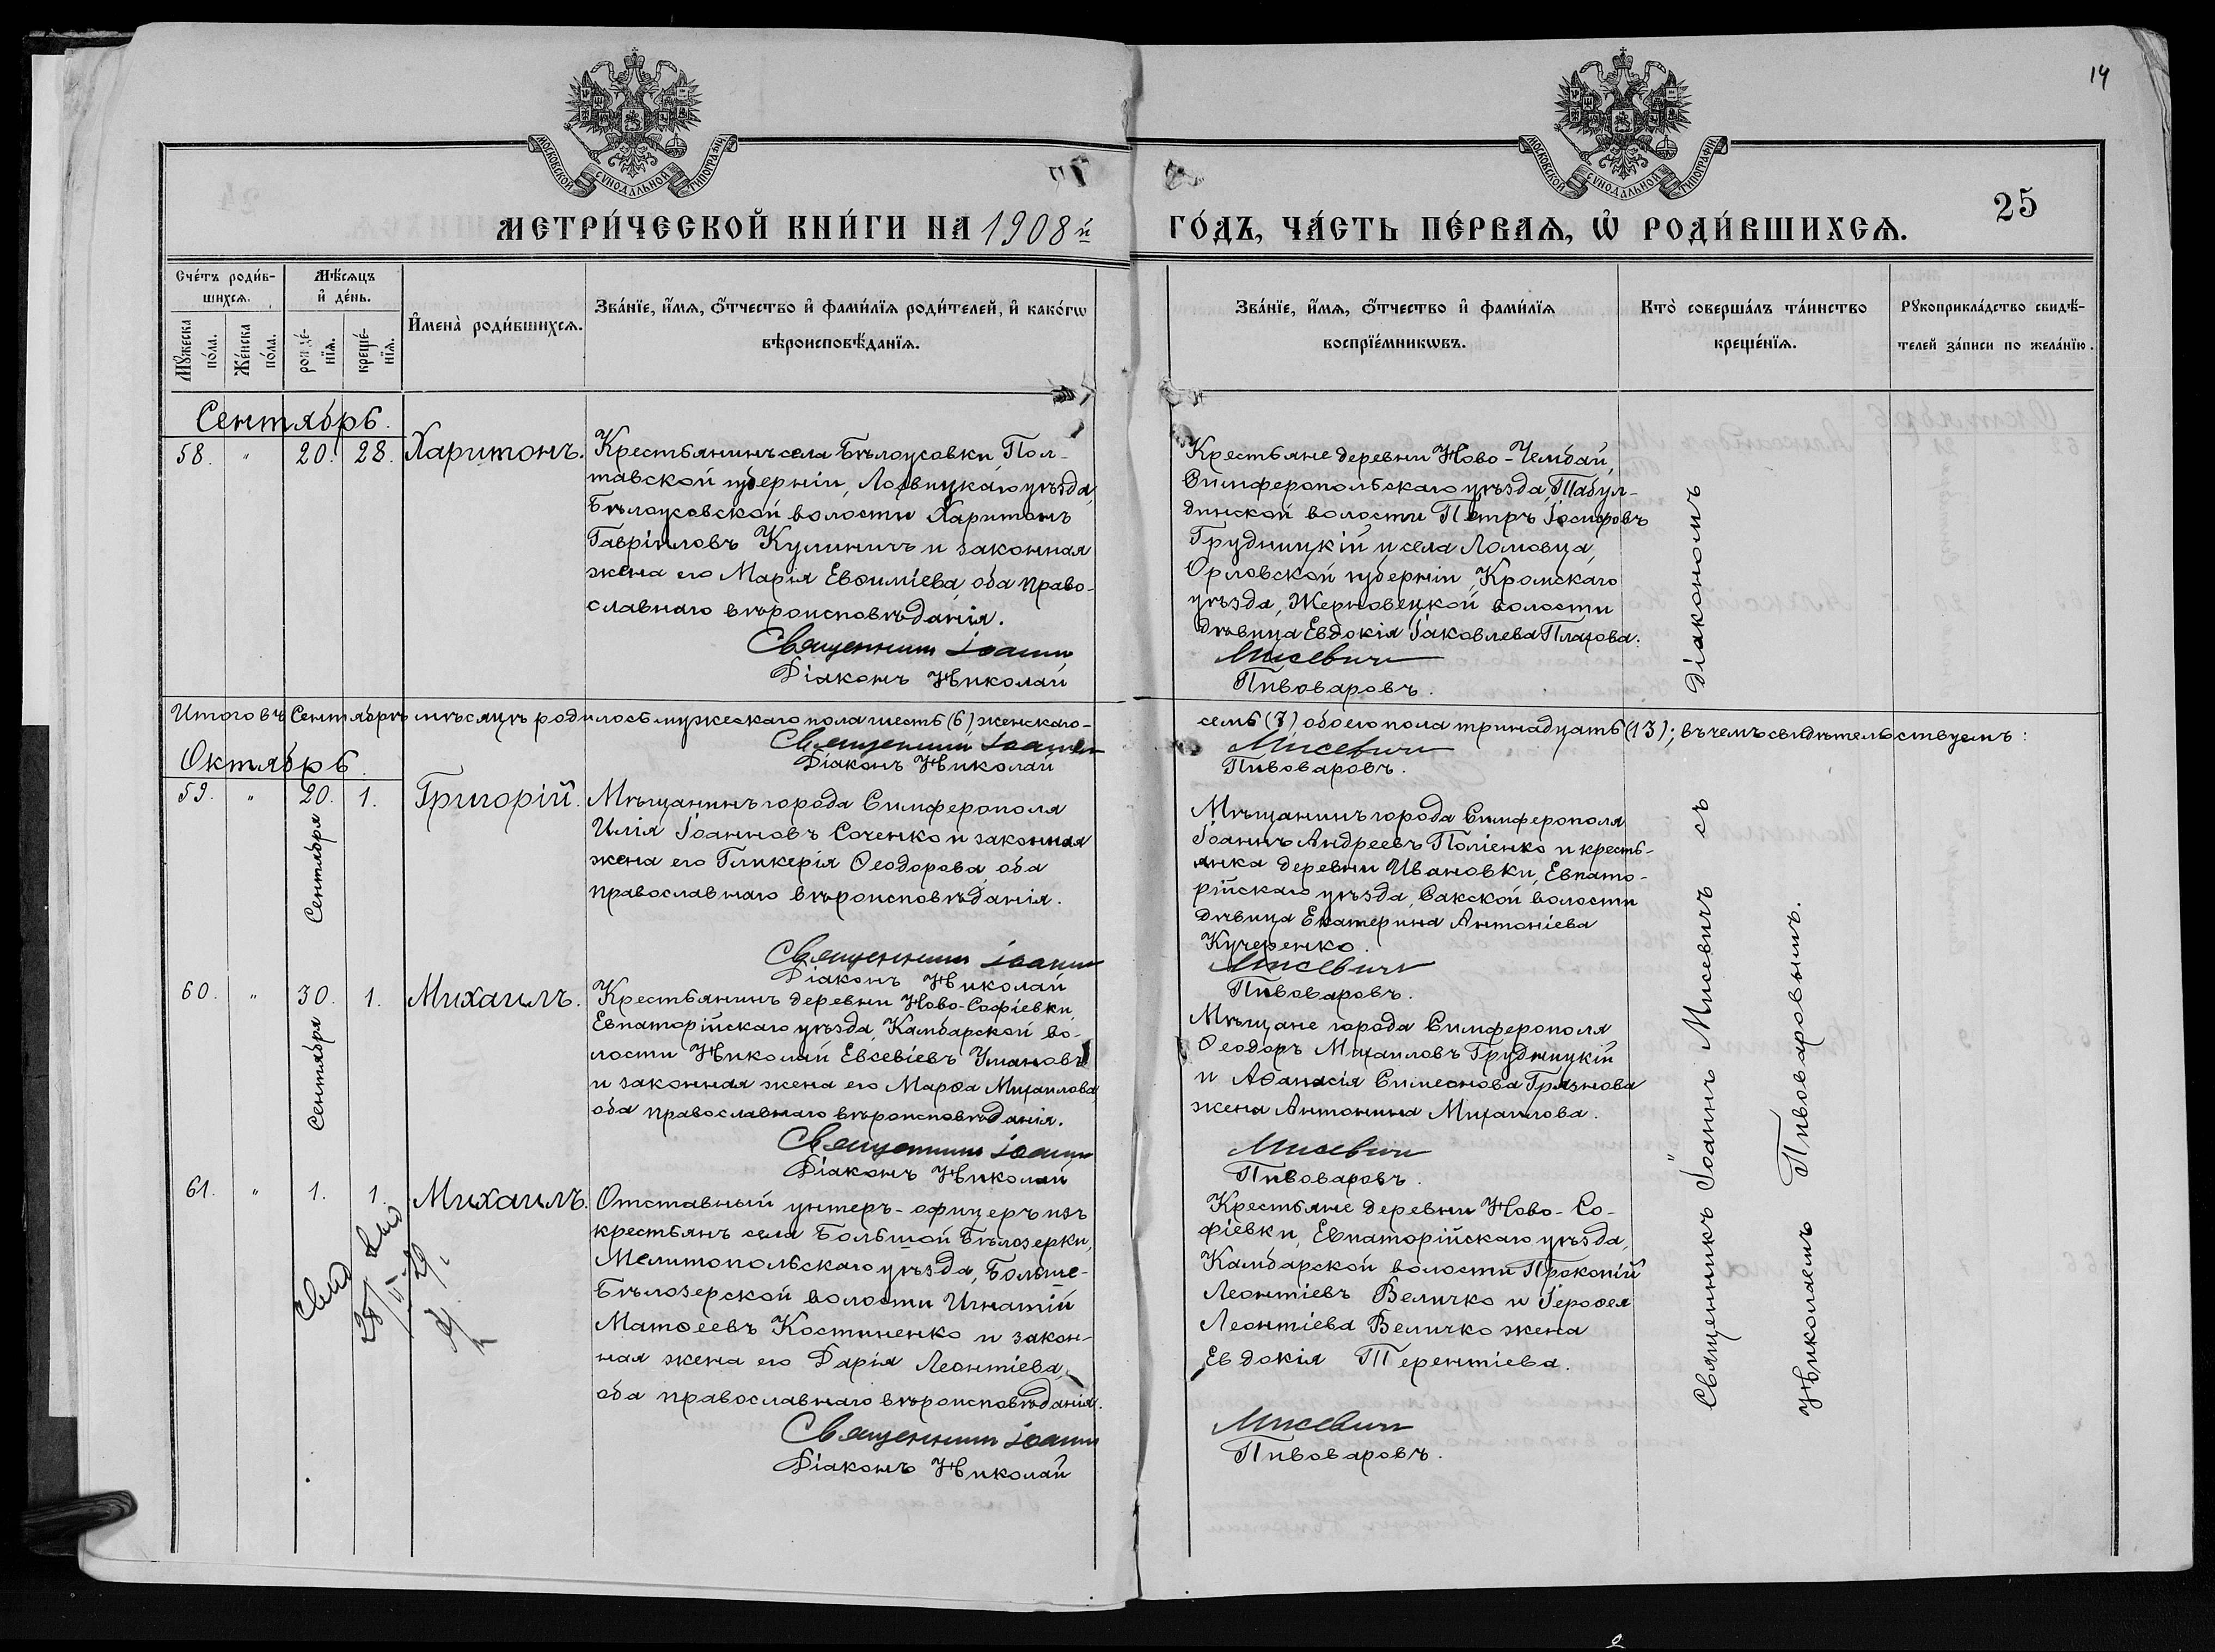 14
МОСКОВСКОЙ СѴНОДАЛЬНОЙ ТИПОГРАФІИ
МОСКОВСКОЙ СѴНОДАЛЬНОЙ ТИПОГРАФІИ
МЕТРИ́ЧЕСКОЙ КНИ́ГИ НА 1908 й
ГО́ДЪ, ЧА́СТЬ ПЕ́РВАѦ, Ѡ҆ РОДИ́ВШИХСѦ.
25
Сче́тъ роди́в-
шихсѧ.
Мѣ́сѧцъ
и҆ де́нь.
Мꙋ́жеска
по́ла.
Же́нска
по́ла.
рожде́-
нїѧ.
креще́-
нїѧ.
И҆мена̀ роди́вшихсѧ.
Зва́нїе, и҆́мѧ, ѻ҆́тчество и҆ фами́лїѧ роди́телей, и҆ како́гѡ
вѣроисповѣ́данїѧ.
Зва́нїе, и҆́мѧ, ѻ҆́тчество и҆ фами́лїѧ
воспрїе́мникѡвъ.
Кто̀ соверша́лъ та́инство
креще́нїѧ.
Рꙋкоприкла́дство свидѣ́-
телей за́писи по жела́нїю.
Сентябрь.
58. " 20. 28. Харитонъ.
Крестьянинъ села Бѣлоусовки, Пол-
тавской губерніи, Лохвицкаго уѣзда,
Бѣлоусовской волости Харитонъ
Гавріиловъ Кулиничъ и законная
жена его Марія Евѳиміева, оба право-
славнаго вѣроисповѣданія.
Священникъ Іоаннъ
Діаконъ Николай
Крестьяне деревни Ново-Чембай,
Симферопольскаго уѣзда, Табул-
динской волости Петръ Іосифовъ
Грудницкій и села Ломовца,
Орловской губерніи, Кромскаго
уѣзда, Жерновецкой волости
дѣвица Евдокія Іаковлева Плахова.
Мисевичъ
Пивоваровъ.
Итого въ Сентябрѣ мѣсяцѣ родилось мужескаго пола шесть (6), женскаго-
семь (7), обоего пола тринадцать (13); въ чемъ свидѣтельствуемъ:
Священникъ Іоаннъ
Діаконъ Николай
Мисевичъ
Пивоваровъ.
Октябрь.
59. " 20. Сентября 1. Григорій.
Мѣщанинъ города Симферополя
Илія Іоанновъ Соченко и законная
жена его Гликерія Ѳеодорова, оба
православнаго вѣроисповѣданія.
Священникъ Іоаннъ
Діаконъ Николай
Мѣщанинъ города Симферополя
Іоаннъ Андреевъ Поліенко и кресть-
янка деревни Ивановки, Евпато-
рійскаго уѣзда, Сакской волости
дѣвица Екатерина Антоніева
Кучеренко.
Мисевичъ
Пивоваровъ.
60. " 30. Сентября 1. Михаилъ.
Крестьянинъ деревни Ново-Софіевки,
Евпаторійскаго уѣзда, Камбарской во-
лости Николай Евсевіевъ Умановъ
и законная жена его Марѳа Михаилова
оба православнаго вѣроисповѣданія.
Священникъ Іоаннъ
Діаконъ Николай
Мѣщане города Симферополя
Ѳеодоръ Михаиловъ Грудницкій
и Аѳанасія Симеонова Грязнова
жена Антонина Михаилова.
Мисевичъ
Пивоваровъ.
61. " 1. 1. Михаилъ.
Отставный унтеръ-офицеръ изъ
крестьянъ села Большой Бѣлозерки,
Мелитопольскаго уѣзда, Больше-
Бѣлозерской волости Игнатій
Матѳеевъ Костиненко и закон-
ная жена его Дарія Леонтіева,
оба православнаго вѣроисповѣданія.
Священникъ Іоаннъ
Діаконъ Николай
Крестьяне деревни Ново-Со-
фіевки, Евпаторійскаго уѣзда,
Камбарской волости Прокопій
Леонтіевъ Величко и Іероѳея
Леонтіева Величко жена
Евдокія Терентіева.
Мисевичъ
Пивоваровъ.
Священникъ Іоаннъ Мисевичъ съ Діакономъ
Николаемъ Пивоваровымъ.